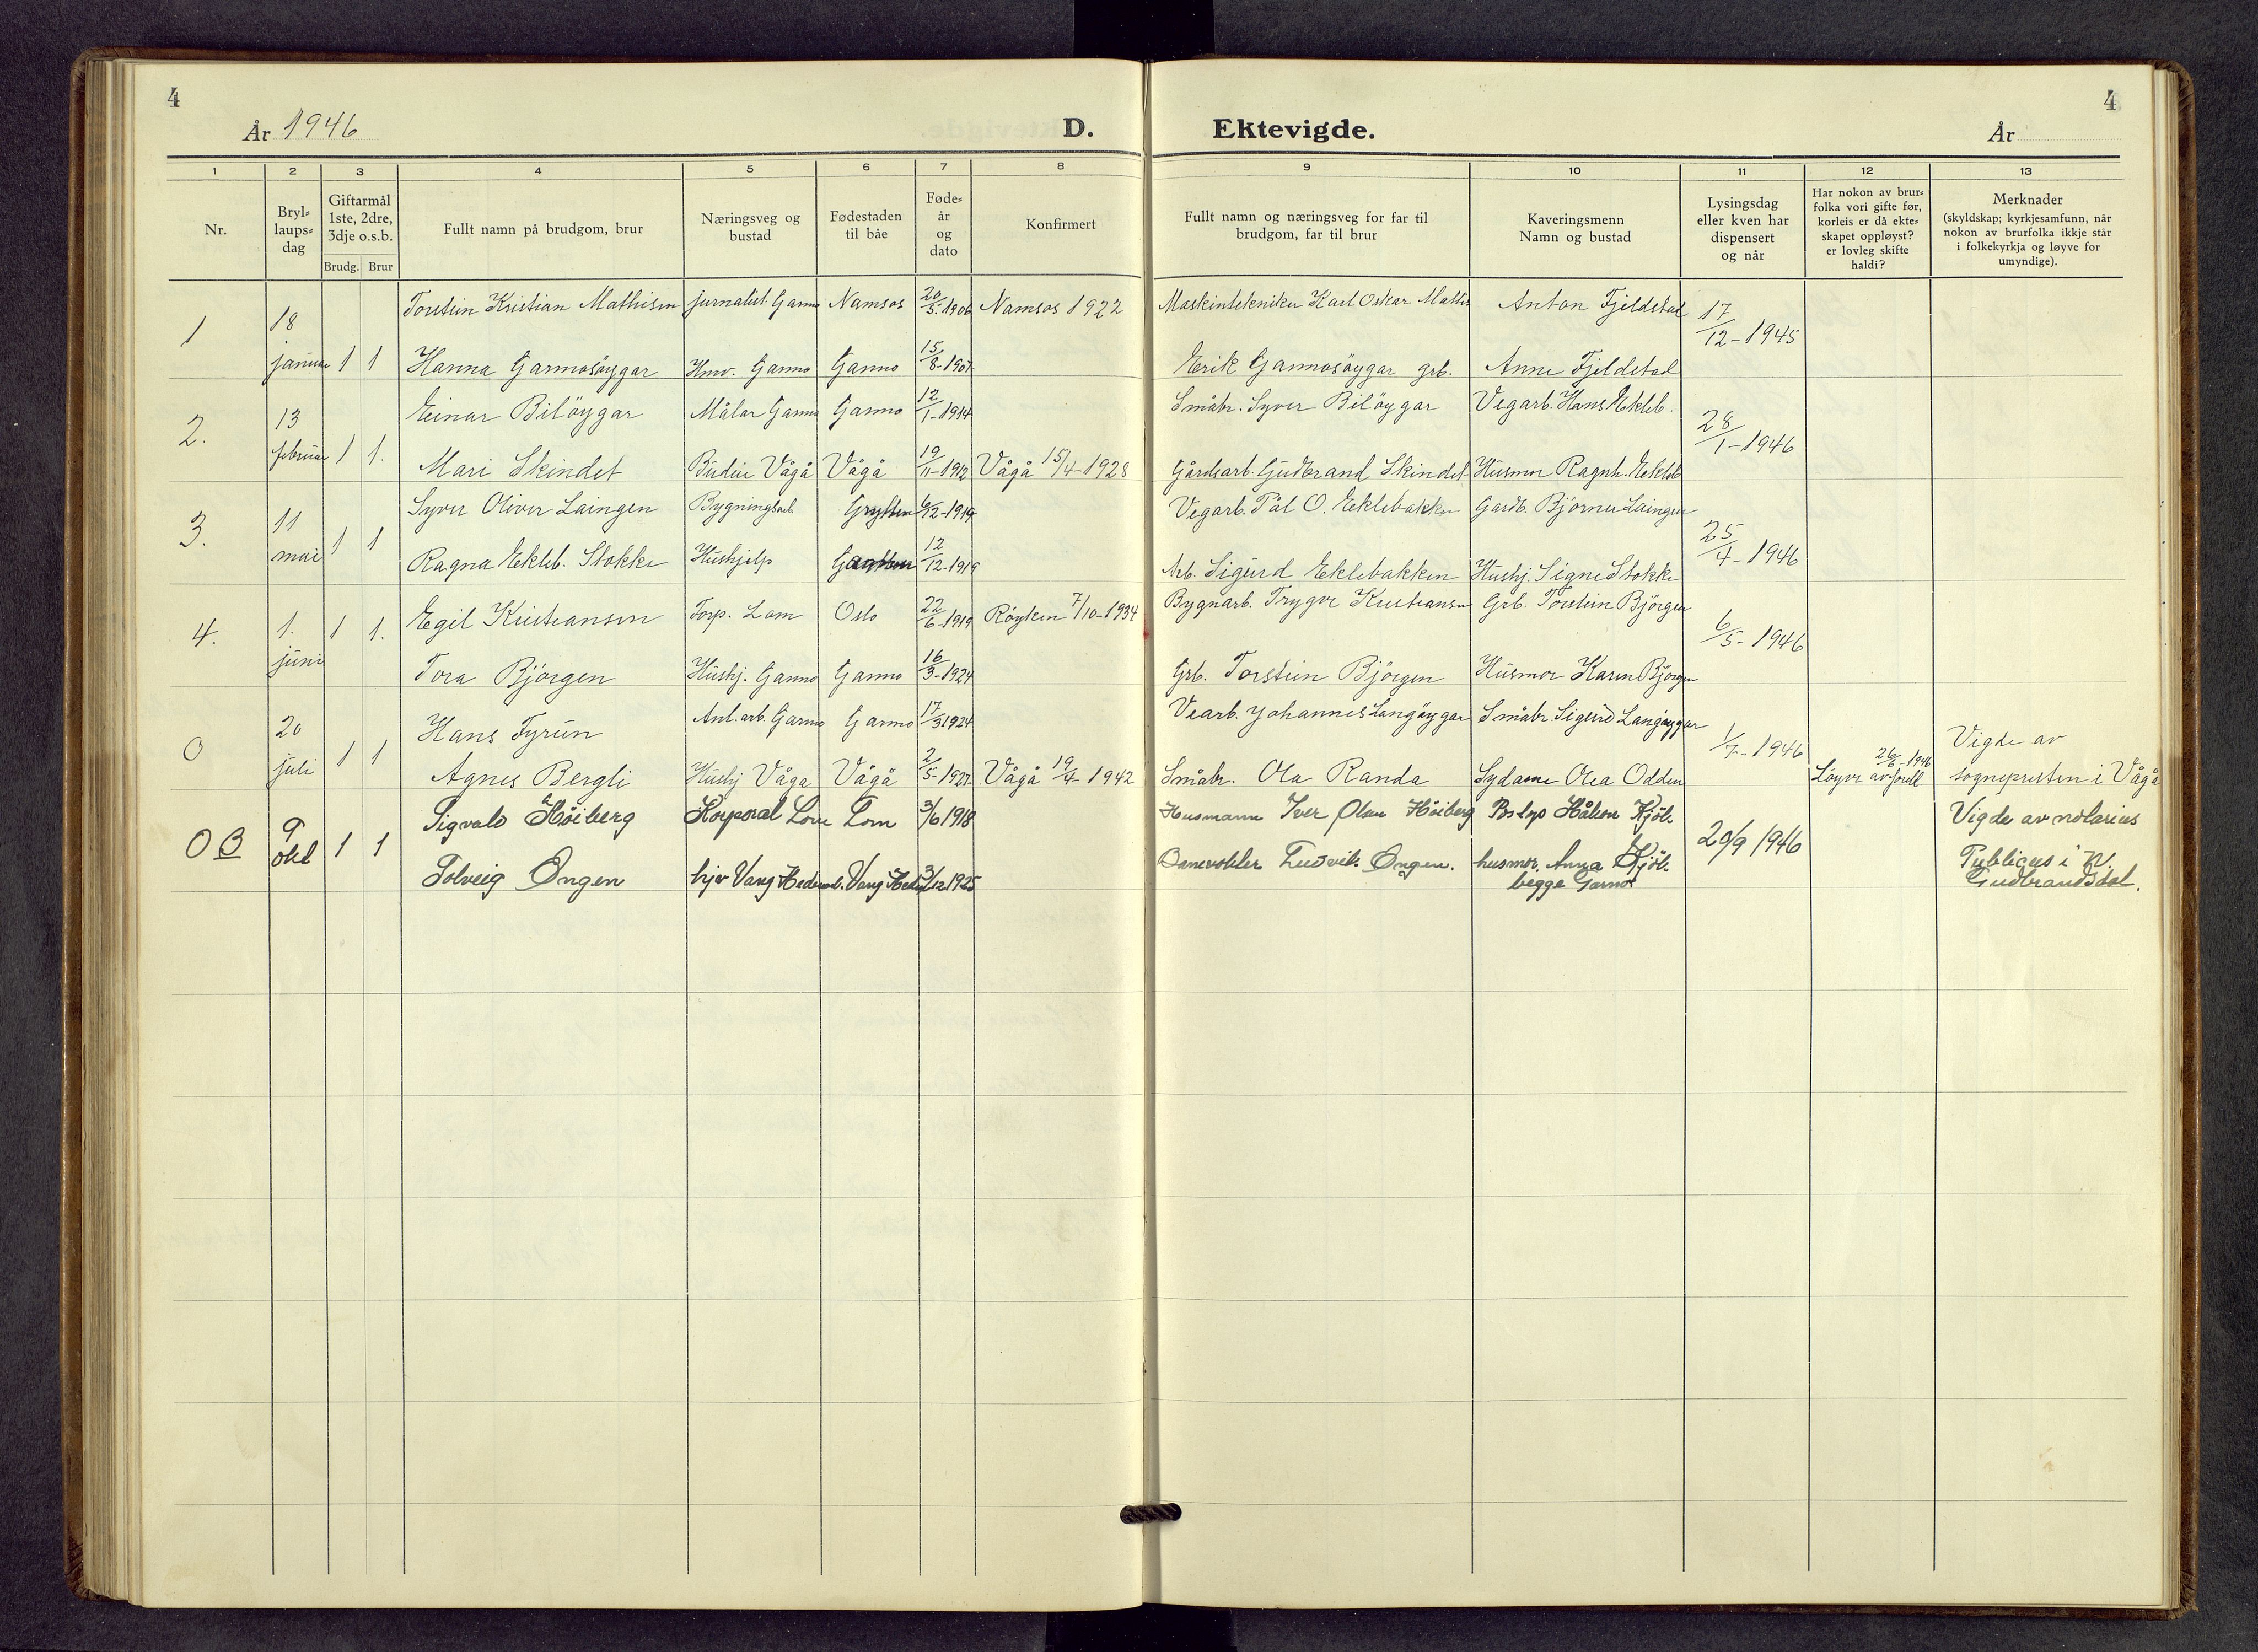 4
År 1946
D.
Ektevigde.
År
4
1 2 3 4 5 6 7 8 9 10 11 12 13
Nr.
Bryl-
laups-
dag
Giftarmål
1ste, 2dre,
3dje o.s.b.
Brudg. Brur
Fullt namn på brudgom, brur
Næringsveg og
bustad
Fødestaden
til båe
Føde-
år
og
dato
Konfirmert
Fullt namn og næringsveg for far til
brudgom, far til brur
Kaveringsmenn
Namn og bustad
Lysingsdag
eller kven har
dispensert
og når
Har nokon av brur-
folka vori gifte før,
korleis er då ekte-
skapet oppløyst?
er lovleg skifte
haldi?
Merknader
(skyldskap; kyrkjesamfunn, når
nokon av brurfolka ikkje står
i folkekyrkja og løyve for
umyndige).
1 18 Torstein Kristian Mathisen jurnalist. Garmo Namsos 20/5-1906 Namsos 1922 Maskintekniker Karl Oskar Mathis Anton Fjeldstad 17/12-1945
januar 1 1 Hanna Garmosøygar Hmv. Garmo Garmo 15/8-1907 Erik Garmosøygar grb. Anne Fjeldstad
2. 13 Einar Biløygar Målar Garmo Garmo 12/1-1914 Småbr. Syver Biløygar Vegarb. Hans Ekleb. 28/1-1946
februar 1 1. Mari Skindet Budeie Vågå Vågå 19/11-1912 Vågå 15/4-1928 Gårdsarb. Gudbrand Skindet Husmor Ragnh. Ekleb
3. 11 Syver Oliver Laingen Bygningsarb. Grytten 6/12-1919 Vegarb. Pål O. Eklebakken Gardb. Bjørner Laingen 25/4-1946
mai 1 1 Ragna Ekleb. Stokke Hushjelp 12/12-1919 Arb. Sigurd Eklebakken Hushj. Signe Stokke
4. 1. 1 1. Egil Kristiansen Torp. Lom Oslo 22/6-1919 Røyken 7/10-1934 Bygnarb. Trygve Kristiansen Grb. Torstein Bjørgen 6/5-1946
juni Tora Bjørgen Hushj. Garmo Garmo 16/3-1924 Grb. Torstein Bjørgen Husmor Karen Bjørgen
0 20 Hans Fyrün Anl.arb. Garmo Garmo 17/3 1924 Vearb. Johannes Langøygar Småbr. Sigurd Langøygar 1/7-1946 Vigde av
juli 1 1 Agnes Bergli Hushj Våga Vågå 2/5-1927 Vågå 19/4 1942 Småbr. Ola Randa Sydame Olea Odden 26/6-1946 Løyve av foreld. sognepresten i Vågå
0 B 9 Sigvald Høiberg Korporal Lom Lom 3/6 1918 Husmann Iver Olsen Høiberg Håkon Kjøl. 20/9 1946 Vigde av notarius
okt 1 1 Solveig Ongen hjv Vang Hedemark. Vang Hedm 3/12 1925 Banevokter Ludvik Ongen. husmor. Anna Kjøl. Publicus i N.
begge Garmo Gudbrandsdal.